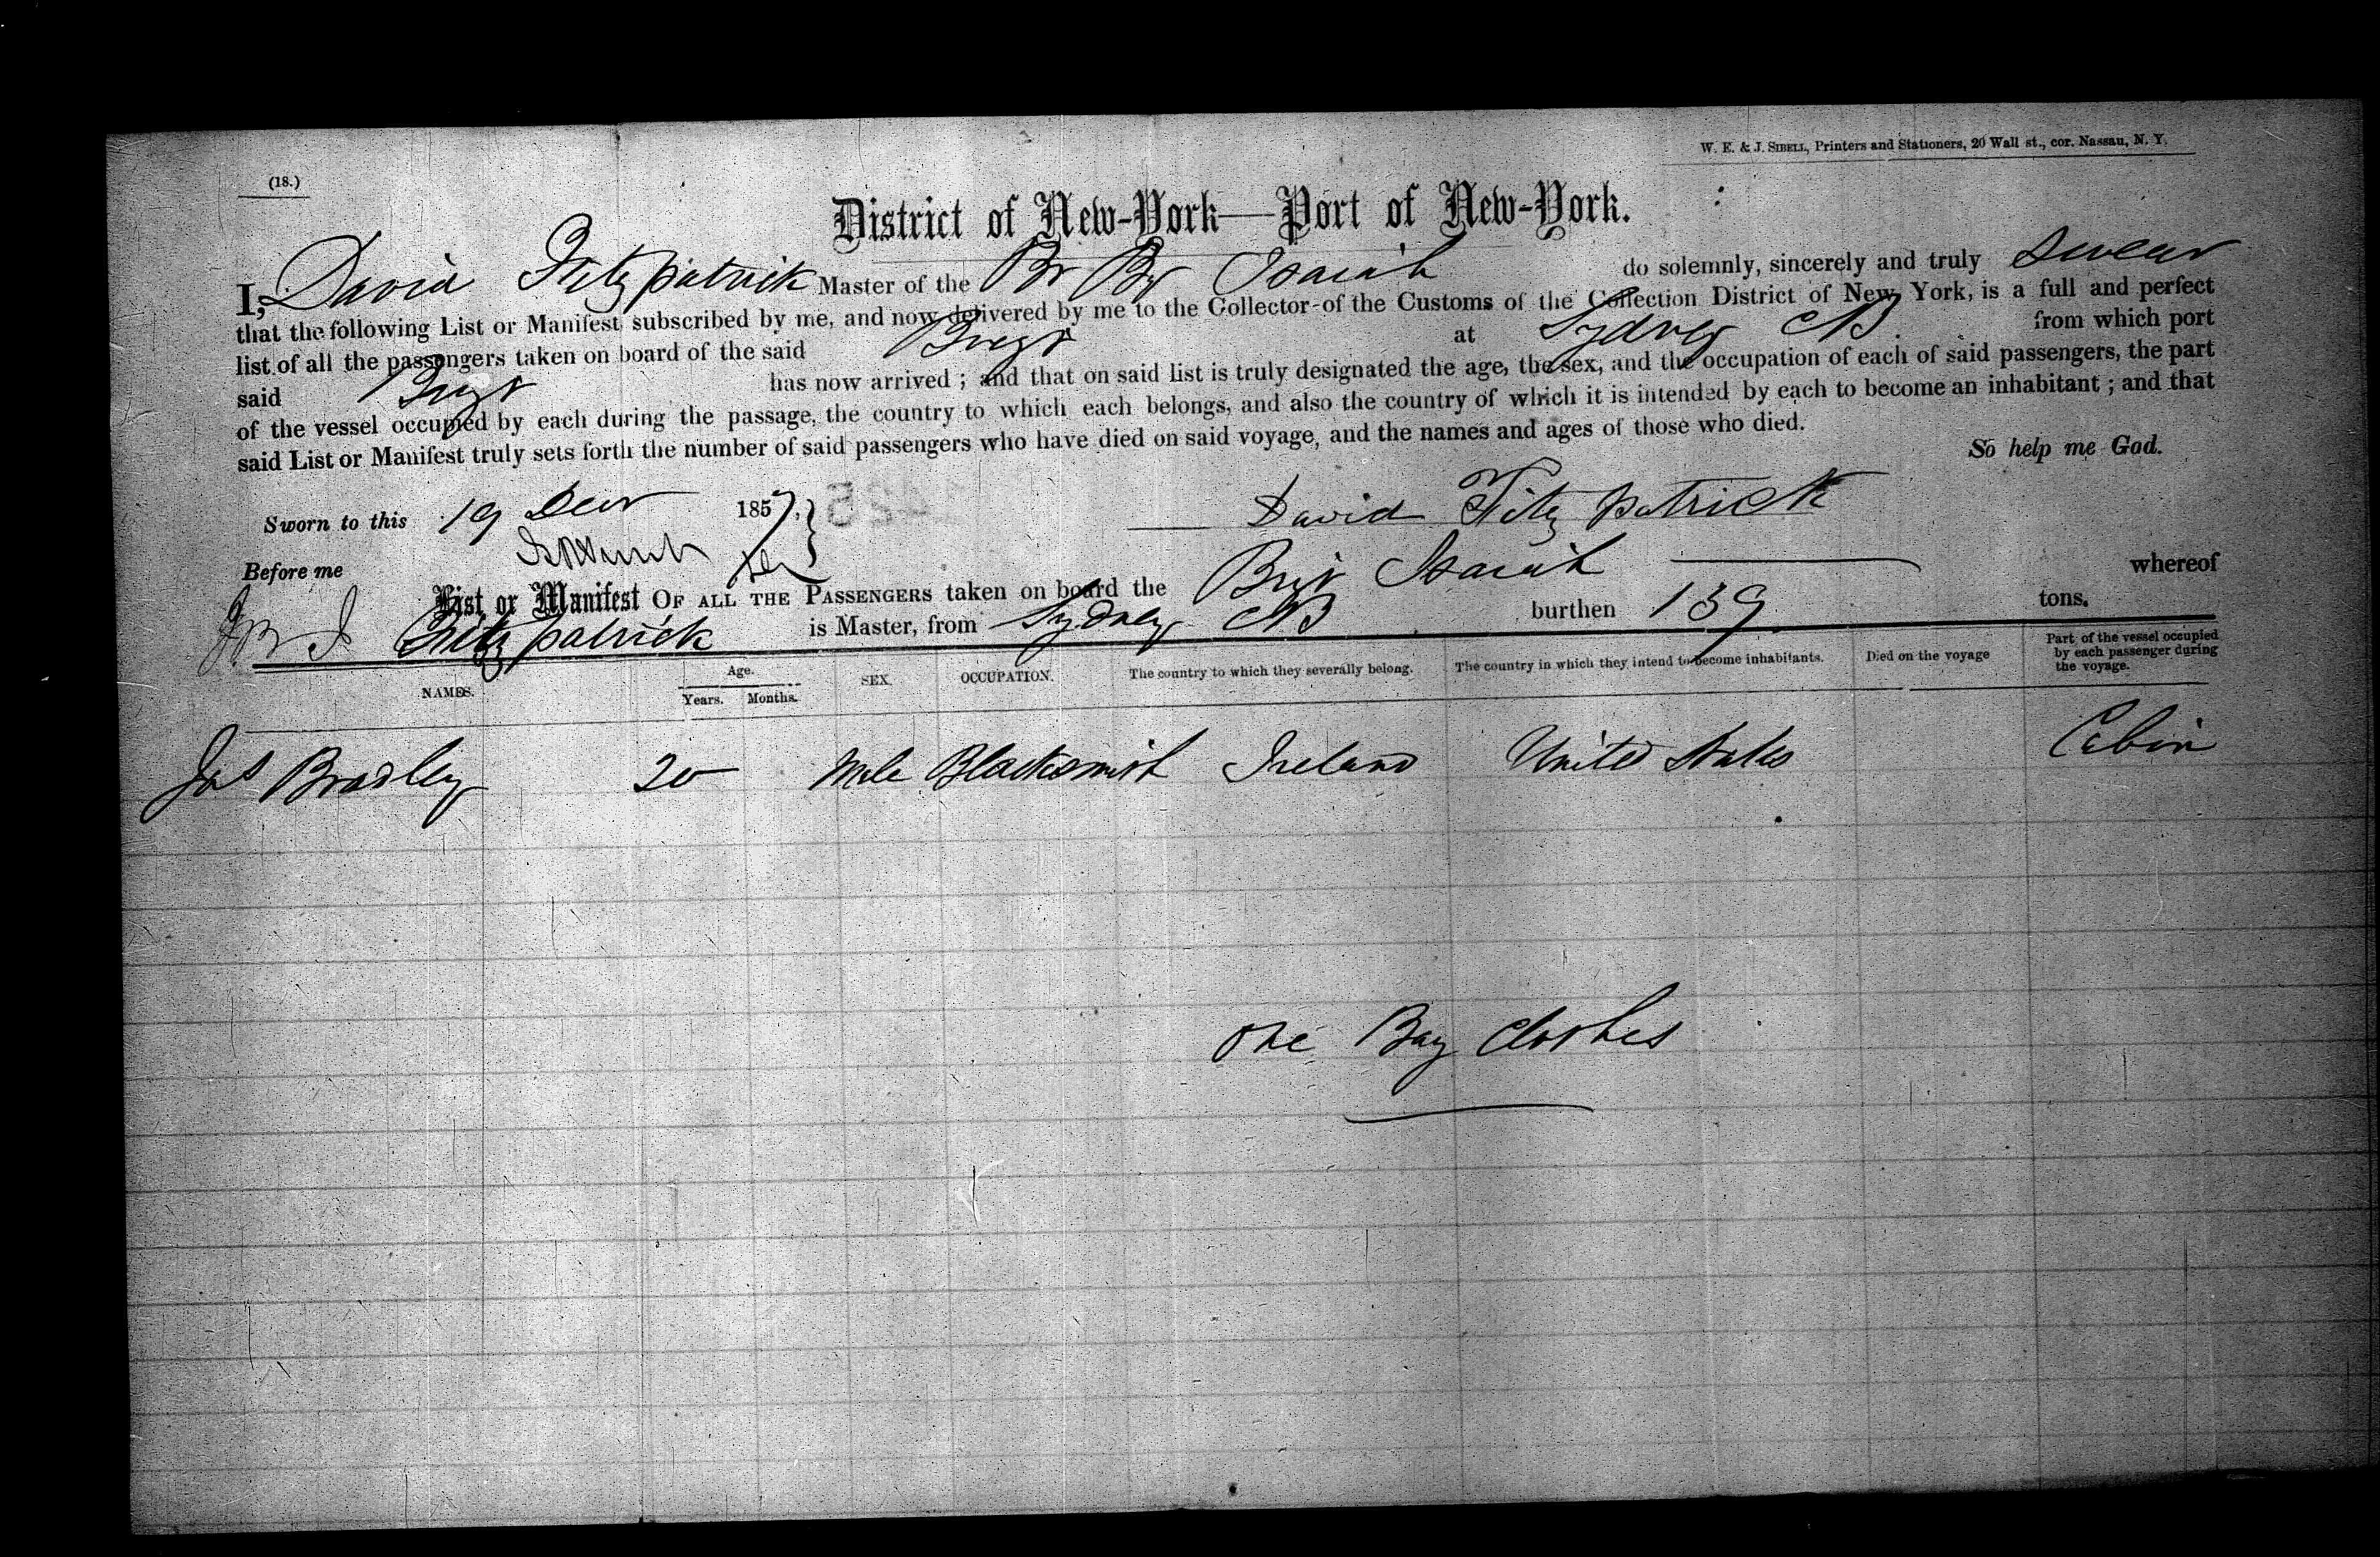 W. E. & J. SIBELL, Printers and Stationers, 20 Wall st., cor. Nassau, N. Y.
(18.)
District of New-York—Port of New-York.
I, David Fitzpatrick Master of the Br Bg Isaiah do solemnly, sincerely and truly swear
that the following List or Manifest, subscribed by me, and now delivered by me to the Collector of the Customs of the Collection District of New York, is a full and perfect
list of all the passengers taken on board of the said Brig at Sydney CB from which port
said Brig has now arrived; and that on said list is truly designated the age, the sex, and the occupation of each of said passengers, the part
of the vessel occupied by each during the passage, the country to which each belongs, and also the country of which it is intended by each to become an inhabitant; and that
said List or Manifest truly sets forth the number of said passengers who have died on said voyage, and the names and ages of those who died.
So help me God.
Sworn to this 19 Decr 1857,
David Fitz patrick
Before me
List or Manifest OF ALL THE PASSENGERS taken on board the Brig Isaiah whereof
Fitzpatrick is Master, from Sydney CB burthen 139 tons.
NAMES. Age. Years. Months. SEX. OCCUPATION. The country to which they severally belong. The country in which they intend to become inhabitants. Died on the voyage Part of the vessel occupied by each passenger during the voyage.
Jas Bradley 20 Male Blacksmith Ireland United States Cabin
One Bag Clothes